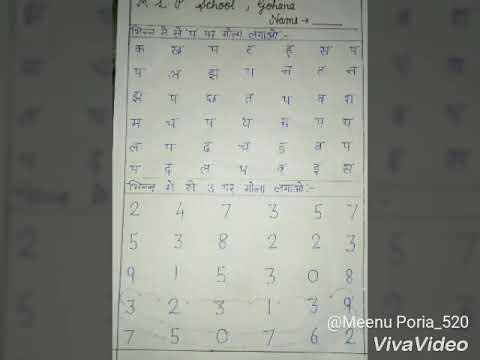 School, Gohana
Name →
भिन्न में से प पर गोला लगाओ :-
क ख प ट ह स प
प अ झ प न त न
झ प छ त प व श
म च प य म प प
ल प ढ च इ व प
प द ल प क इ स
भिन्न में से 3 पर गोला लगाओ:-
2 4 7 3 5 7
5 3 8 2 2 3
9 1 5 3 0 8
3 2 3 1 3 9
7 5 0 7 6 2
@Meenu Poria_520
VivaVideo